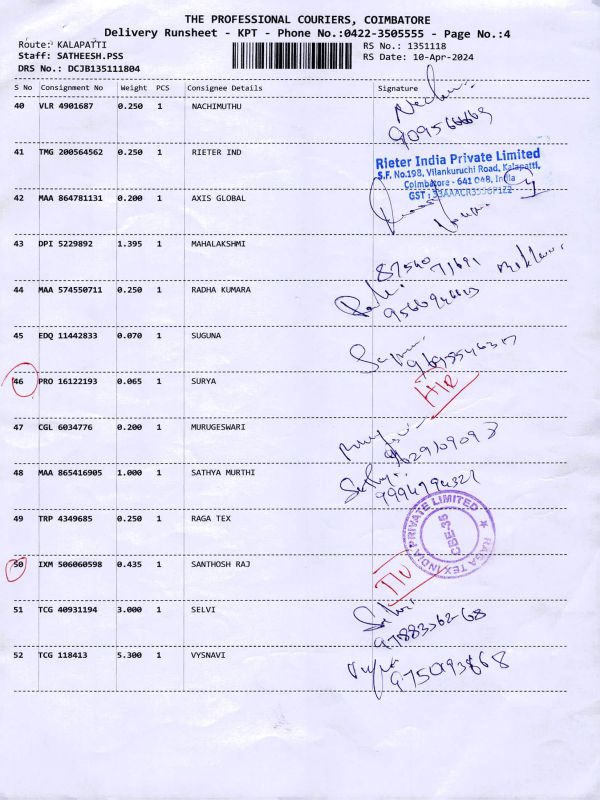 THE PROFESSIONAL COURIERS, COIMBATORE
Delivery Runsheet - KPT - Phone No.:0422-3505555 - Page No.:4
Route: KALAPATTI
RS No.: 1351118
Staff: SATHEESH.PSS
RS Date: 10-Apr-2024
DRS No.: DCJB135111804
S No Consignment No Weight PCS Consignee Details Signature
40 VLR 4901687 0.250 1 NACHIMUTHU
41 TMG 200564562 0.250 1 RIETER IND
Rieter India Private Limited
S.F. No.198, Vilankuruchi Road, Kalapatti,
Coimbatore - 641 048, India
GST :
42 MAA 864781131 0.200 1 AXIS GLOBAL
43 DPI 5229892 1.395 1 MAHALAKSHMI
44 MAA 574550711 0.250 1 RADHA KUMARA
45 EDQ 11442833 0.070 1 SUGUNA
46 PRO 16122193 0.065 1 SURYA
47 CGL 6034776 0.200 1 MURUGESWARI
9629109093
48 MAA 865416905 1.000 1 SATHYA MURTHI
9994794321
49 TRP 4349685 0.250 1 RAGA TEX
RAGA TEX INDIA PRIVATE LIMITED
CBE-35
50 IXM 506060598 0.435 1 SANTHOSH RAJ
51 TCG 40931194 3.000 1 SELVI
52 TCG 118413 5.300 1 VYSNAVI